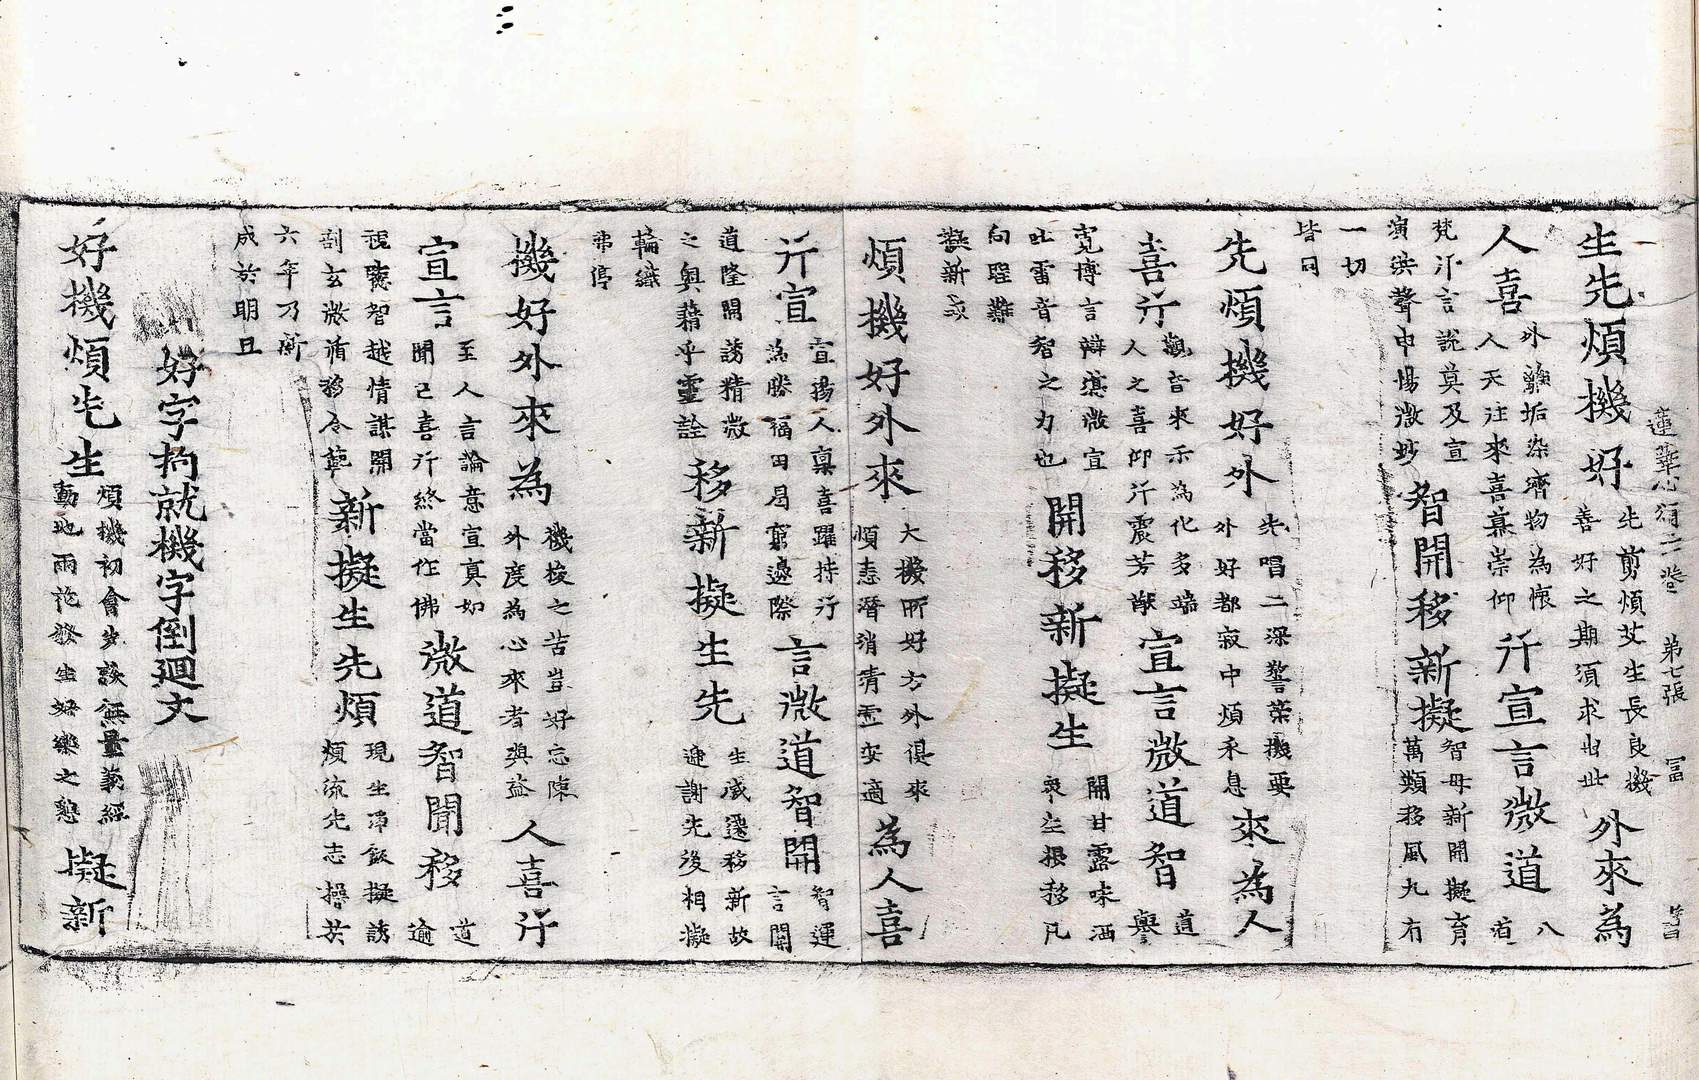 蓮華心頌二卷 第七張 冨
生先煩機好
先剪煩艾生長良機
善好之期須求出此
外來為
人喜
外離垢染齊物為懷
人天注來喜慕崇仰
行宣言微道
八
梵行言說莫及宣
演洪聲申暢微妙
智開移新擬
智母新開擬育
萬類移風九有
一切
皆同
先煩機好外
先唱二深警策機要
外好都寂中煩永息
來為人
喜行
觀音來示為化多端
人之喜仰行震芳猷
宣言微道智
道
寬博言辯溥微宣
吐雷音智之力也
開移新擬生
開甘露味洒
衆生根移凡
向聖難
擬新求
煩機好外來
大機所好方外俱來
煩恚潛消清虛安適
為人喜
行宣
宣揚人稟喜躍持行
為勝福田局窮邊際
言微道智開
智運
言開
道隆開誘精微
之奧藉乎靈詮
移新擬生先
生滅遷移新故
遞謝先後相擬
輪織
弗停
機好外來為
機梭之苦豈好忘陳
外度為心來者與益
人喜行
宣言
至人言論意宣真如
聞已喜行終當作佛
微道智開移
道
逾
視聽智越情謀開
剖玄微循移令範
新擬生先煩
現生淨飯擬誘
煩流先志操苦
六年乃漸
成於明旦
好字拘就機字倒廻文
好機煩先生
煩機初會先談無量義經
動地雨花發生好樂之戀
擬新